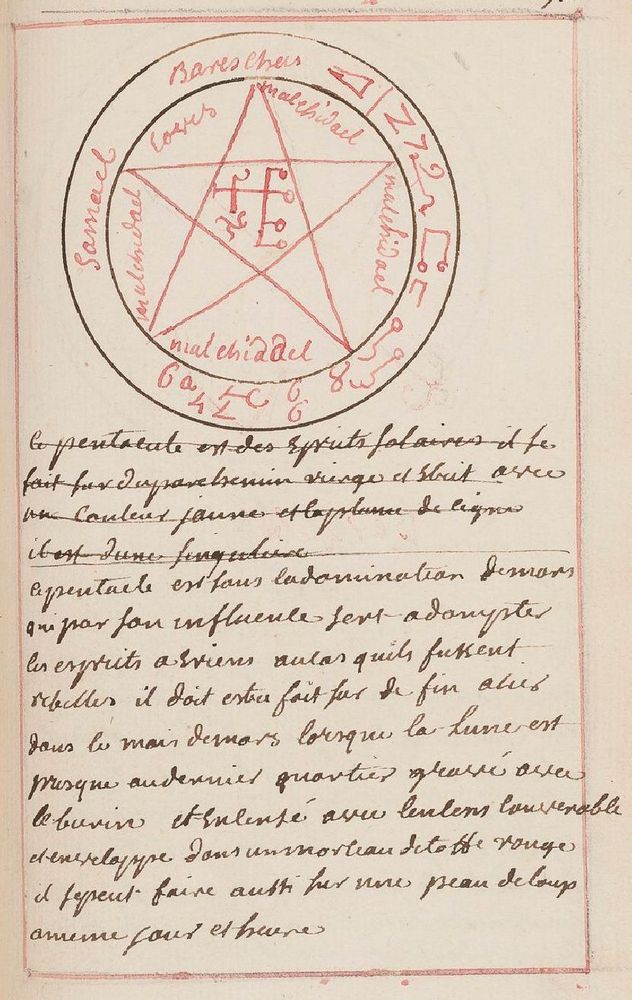 Bareschas
malchidael
Samael
malchidael
malchidael
malchidael
6a
47
66
ce pentacule est des Esprits solaires il se
fait sur du parchemin vierge et Ecrit avec
une Couleur jaune et la plume de cigne
il est d'une singuliere
le pentacle est sous la domination de mars
qui par son influence sert a dompter
les esprits a Eriens au cas quils fussent
rebelles il doit estre fait sur de fin acier
dans le mois de mars lorsque la Lune est
presque au dernier quartier gravé avec
le burin et Enlensé avec lenlens Convenable
et enveloppe dans un morceau detoffe rouge
il se peut faire aussi sur une peau de loup
a meme jour et heure